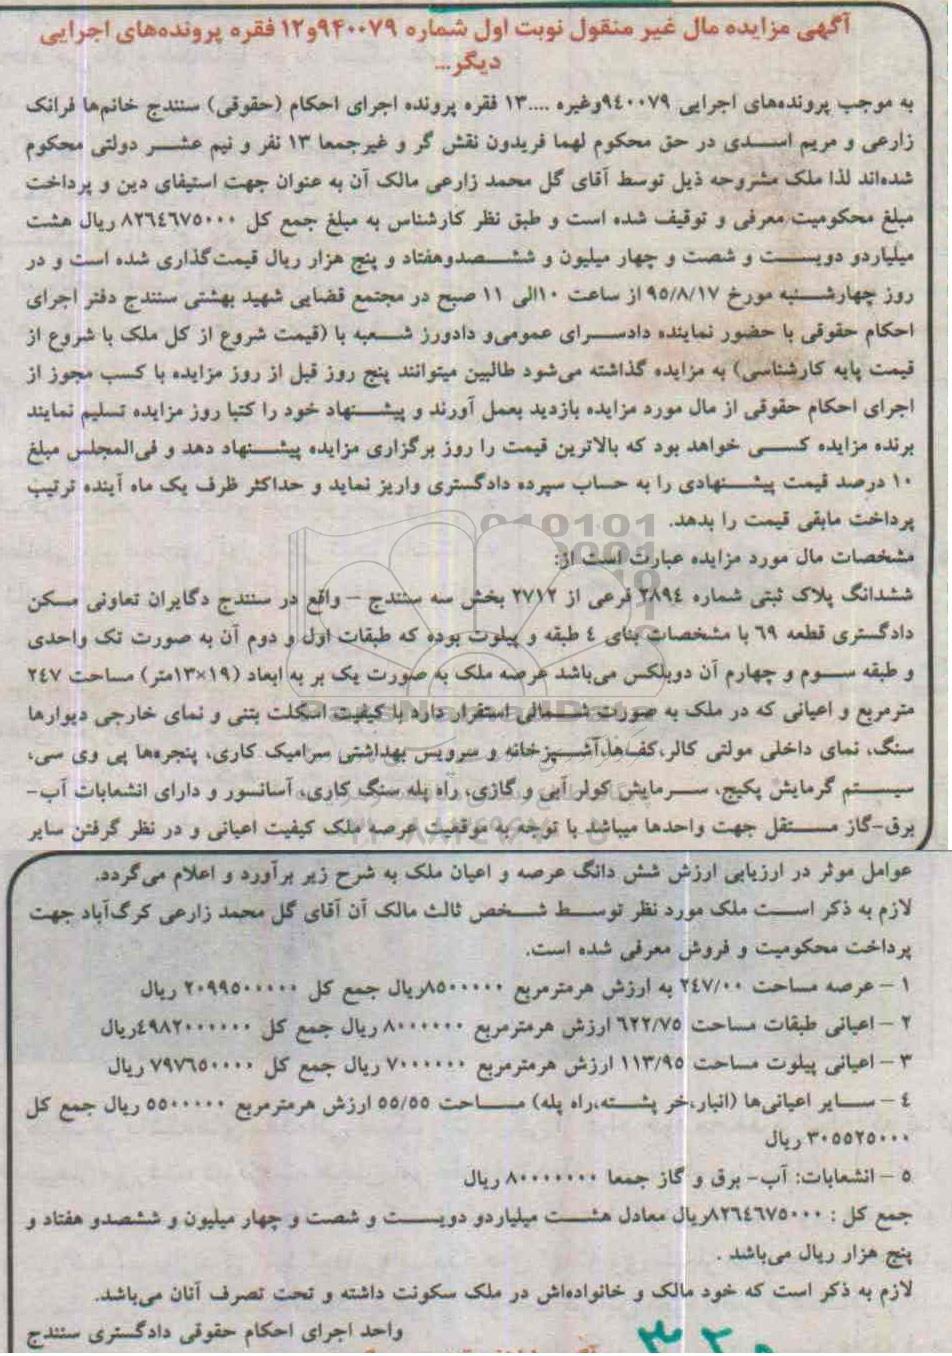 آگهی مزایده مال غیر منقول نوبت اول شماره ۹۴۰۰۷۹و۱۲ فقره پرونده‌های اجرایی
دیگر...
به موجب پرونده‌های اجرایی ۹٤۰۰۷۹وغیره ....۱۳ فقره پرونده اجرای احکام (حقوقی) سنندج خانم‌ها فرانک
زارعی و مریم اسدی در حق محکوم لهما فریدون نقش گر و غیرجمعا ۱۳ نفر و نیم عشر دولتی محکوم
شده‌اند لذا ملک مشروحه ذیل توسط آقای گل محمد زارعی مالک آن به عنوان جهت استیفای دین و پرداخت
مبلغ محکومیت معرفی و توقیف شده است و طبق نظر کارشناس به مبلغ جمع کل ۸۲٦٤٦۷۵۰۰۰ ریال هشت
میلیاردو دویست و شصت و چهار میلیون و ششصدوهفتاد و پنج هزار ریال قیمت‌گذاری شده است و در
روز چهارشنبه مورخ ۹۵/۸/۱۷ از ساعت ۱۰الی ۱۱ صبح در مجتمع قضایی شهید بهشتی سنندج دفتر اجرای
احکام حقوقی با حضور نماینده دادسرای عمومی‌و دادورز شعبه با (قیمت شروع از کل ملک با شروع از
قیمت پایه کارشناسی) به مزایده گذاشته می‌شود طالبین میتوانند پنج روز قبل از روز مزایده با کسب مجوز از
اجرای احکام حقوقی از مال مورد مزایده بازدید بعمل آورند و پیشنهاد خود را کتبا روز مزایده تسلیم نمایند
برنده مزایده کسی خواهد بود که بالاترین قیمت را روز برگزاری مزایده پیشنهاد دهد و فی‌المجلس مبلغ
۱۰ درصد قیمت پیشنهادی را به حساب سپرده دادگستری واریز نماید و حداکثر ظرف یک ماه آینده ترتیب
پرداخت مابقی قیمت را بدهد.
مشخصات مال مورد مزایده عبارت است از:
ششدانگ پلاک ثبتی شماره ۲۸۹٤ فرعی از ۲۷۱۲ بخش سه سنندج – واقع در سنندج دگایران تعاونی مسکن
دادگستری قطعه ٦۹ با مشخصات بنای ٤ طبقه و پیلوت بوده که طبقات اول و دوم آن به صورت تک واحدی
و طبقه سوم و چهارم آن دوبلکس می‌باشد عرصه ملک به صورت یک بر به ابعاد (۱۹×۱۳متر) مساحت ۲٤۷
مترمربع و اعیانی که در ملک به صورت شمالی استقرار دارد با کیفیت اسکلت بتنی و نمای خارجی دیوارها
سنگ، نمای داخلی مولتی کالر،کف‌ها،آشپزخانه و سرویس بهداشتی سرامیک کاری، پنجره‌ها پی وی سی،
سیستم گرمایش پکیج، سرمایش کولر آبی و گازی، راه پله سنگ کاری، آسانسور و دارای انشعابات آب-
برق-گاز مستقل جهت واحدها میباشد با توجه به موقعیت عرصه ملک کیفیت اعیانی و در نظر گرفتن سایر
عوامل موثر در ارزیابی ارزش شش دانگ عرصه و اعیان ملک به شرح زیر برآورد و اعلام می‌گردد.
لازم به ذکر است ملک مورد نظر توسط شخص ثالث مالک آن آقای گل محمد زارعی کرگ‌آباد جهت
پرداخت محکومیت و فروش معرفی شده است.
۱ – عرصه مساحت ۲٤۷/۰۰ به ارزش هرمترمربع ۸۵۰۰۰۰۰ریال جمع کل ۲۰۹۹۵۰۰۰۰۰ ریال
۲ – اعیانی طبقات مساحت ٦۲۲/۷۵ ارزش هرمترمربع ۸۰۰۰۰۰۰ ریال جمع کل ٤۹۸۲۰۰۰۰۰۰ریال
۳ – اعیانی پیلوت مساحت ۱۱۳/۹۵ ارزش هرمترمربع ۷۰۰۰۰۰۰ ریال جمع کل ۷۹۷٦۵۰۰۰۰ ریال
٤ – سایر اعیانی‌ها (انبار،خر پشته،راه پله) مساحت ۵۵/۵۵ ارزش هرمترمربع ۵۵۰۰۰۰۰ ریال جمع کل
۳۰۵۵۲۵۰۰۰ ریال
۵ – انشعابات: آب- برق و گاز جمعا ۸۰۰۰۰۰۰۰ ریال
جمع کل : ۸۲٦٤٦۷۵۰۰۰ریال معادل هشت میلیاردو دویست و شصت و چهار میلیون و ششصدو هفتاد و
پنج هزار ریال می‌باشد .
لازم به ذکر است که خود مالک و خانواده‌اش در ملک سکونت داشته و تحت تصرف آنان می‌باشد.
واحد اجرای احکام حقوقی دادگستری سنندج